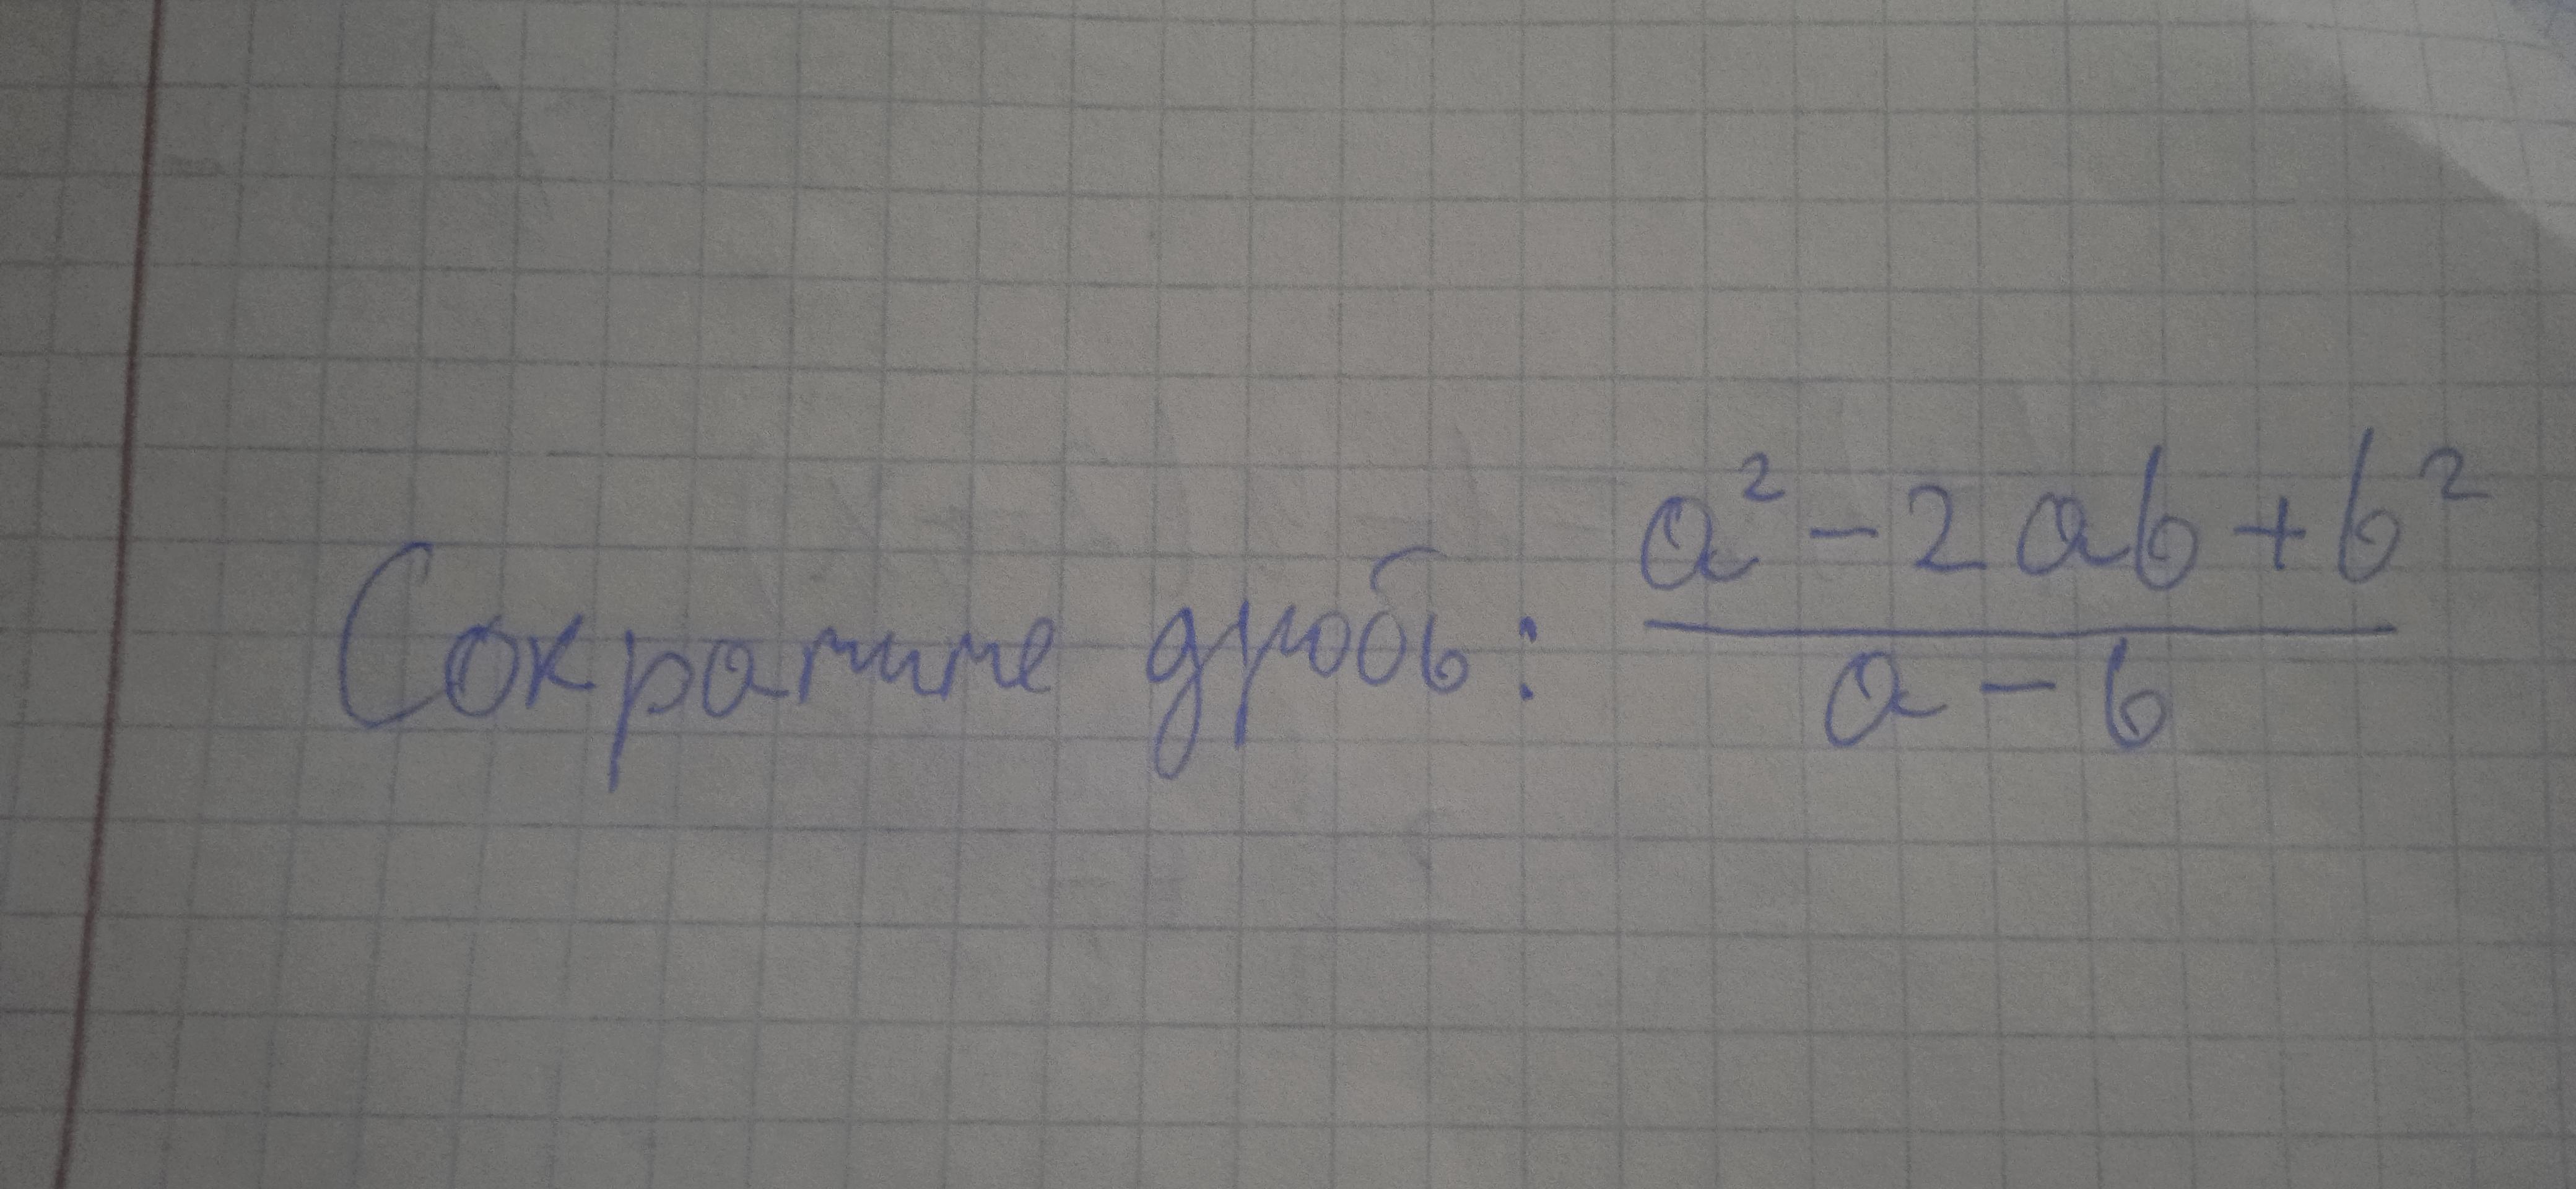 Сократите дробь: \frac{a^2 - 2ab + b^2}{a - b}